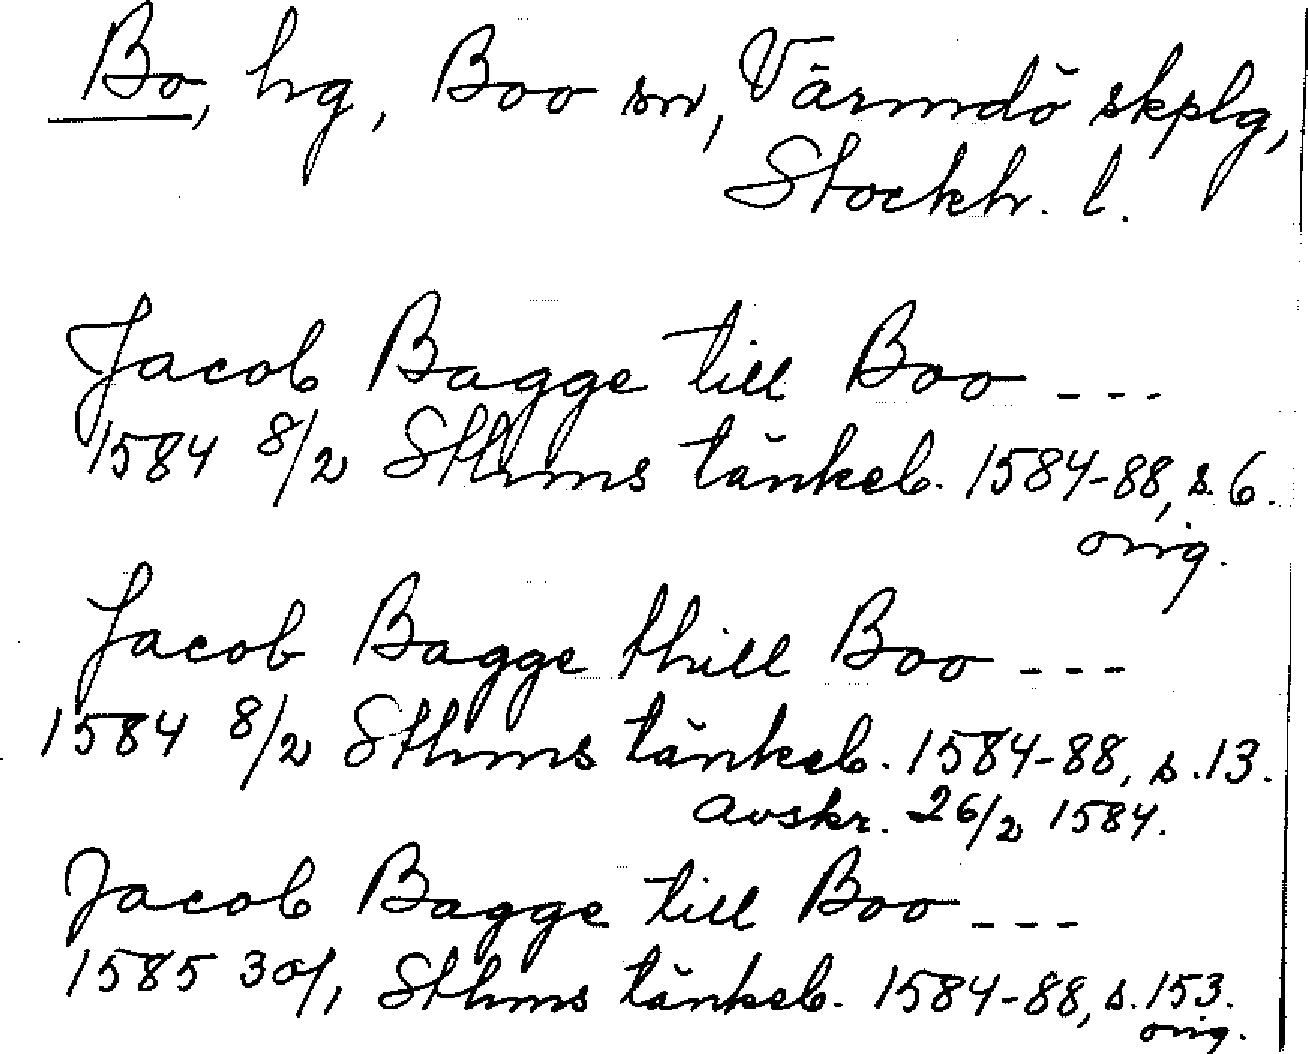 Bo, hg, Boo sn, Värmdö skplg,
Stockh. l.
Jacob Bagge till Boo ---
1584 8/2 Sthms tänkeb. 1584-88, s. 6.
orig.
Jacob Bagge thill Boo ---
1584 8/2 Sthms tänkeb. 1584-88, s. 13.
avskr. 26/2 1584.
Jacob Bagge till Boo ---
1585 30/1 Sthms tänkeb. 1584-88, s. 153.
orig.